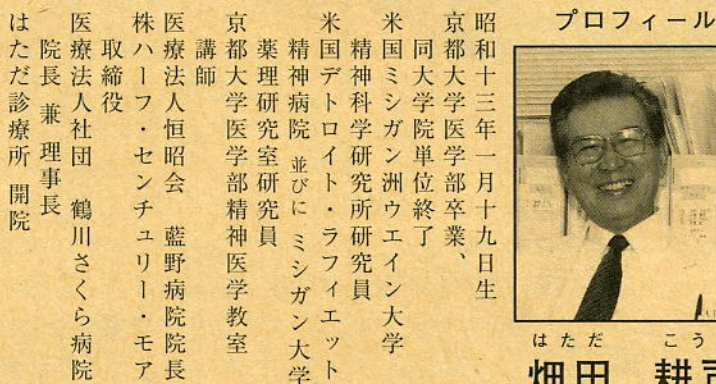 プロフィール
はただ　こう
畑田　耕
昭和十三年一月十九日生
京都大学医学部卒業、
同大学院単位終了
米国ミシガン洲ウエイン大学
精神科学研究所研究員
米国デトロイト・ラフィエット
精神病院 並びに ミシガン大学
薬理研究室研究員
京都大学医学部精神医学教室
講師
医療法人恒昭会　藍野病院院長
株ハーフ・センチュリー・モア
取締役
医療法人社団　鶴川さくら病院
院長 兼 理事長
はただ診療所 開院